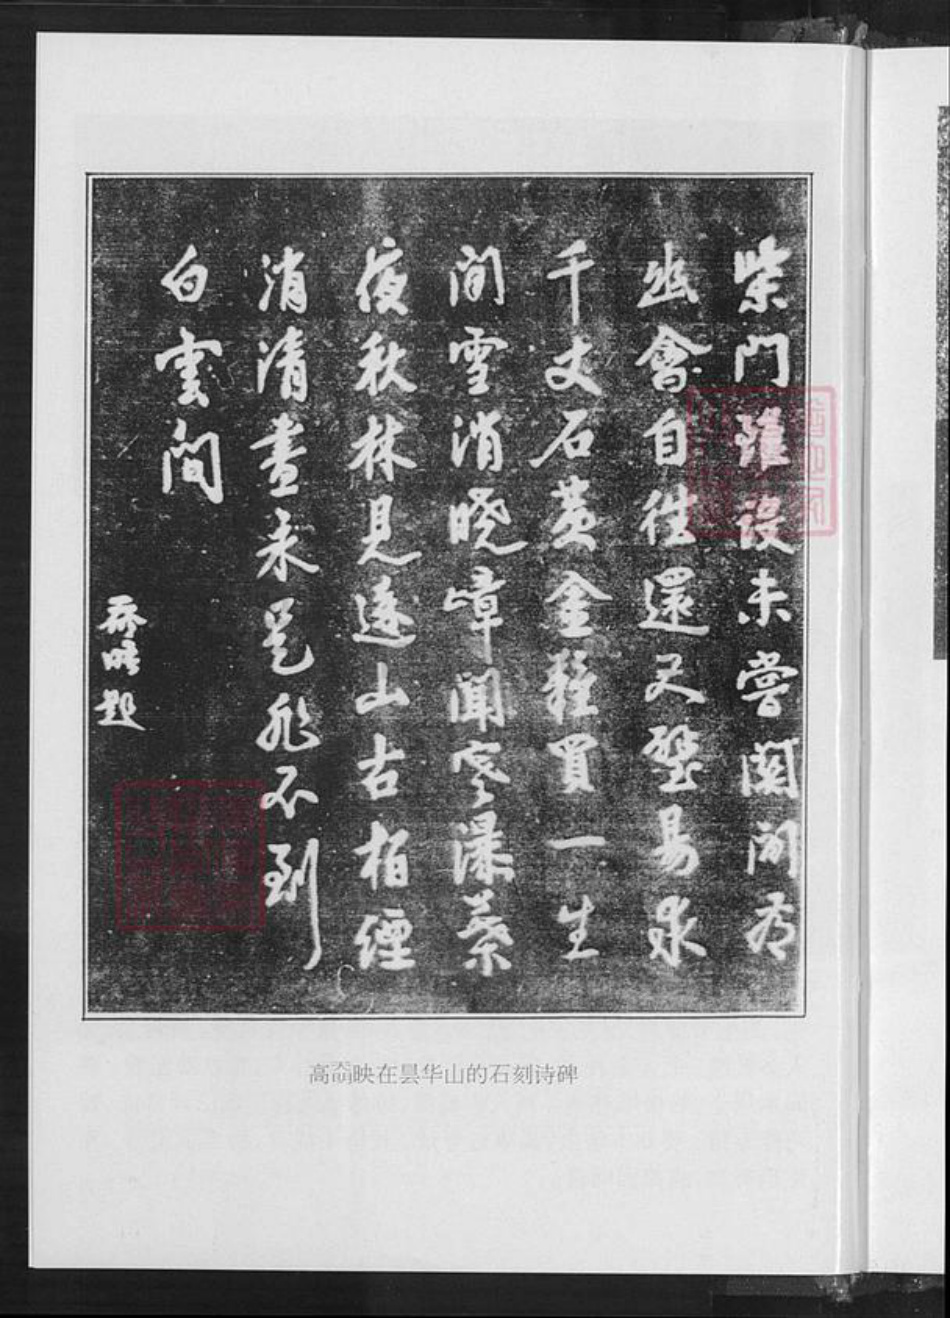 柴門雖設未嘗關閒為
幽會自往還尺璧易求
千丈石黃金難買一生
閒雪消曉嶂聞寒瀑葉
夜秋林見遠山古柏煙
消清晝永是非不到
白雲間
題
高奣映在昙华山的石刻诗碑